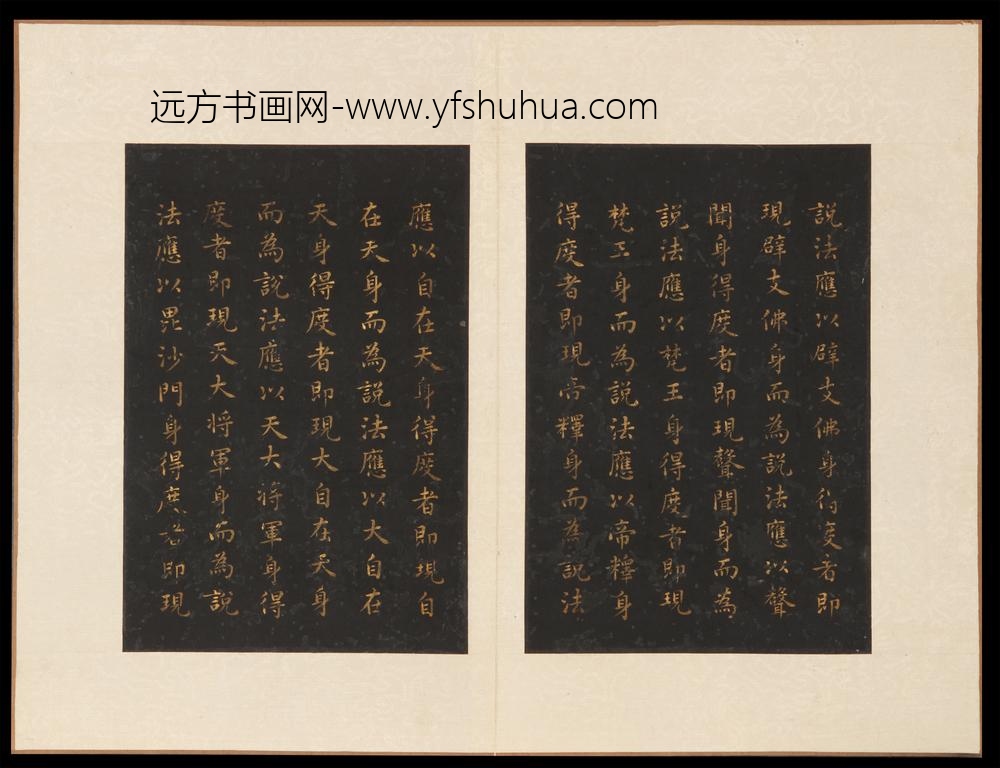 远方书画网-www.yfshuhua.com
說法應以辟支佛身得度者即
現辟支佛身而為說法應以聲
聞身得度者即現聲聞身而為
說法應以梵王身得度者即現
梵王身而為說法應以帝釋身
得度者即現帝釋身而為說法
應以自在天身得度者即現自
在天身而為說法應以大自在
天身得度者即現大自在天身
而為說法應以天大將軍身得
度者即現天大將軍身而為說
法應以毘沙門身得度者即現